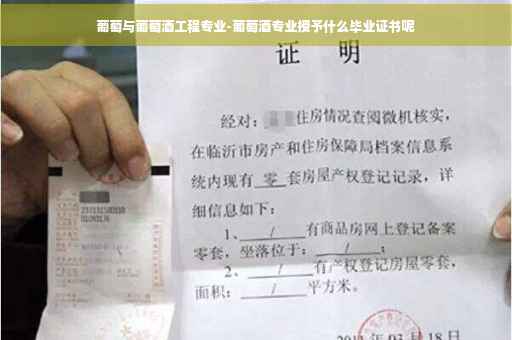 葡萄与葡萄酒工程专业-葡萄酒专业授予什么毕业证书呢
证 明
经对：住房情况查阅微机核实，
在临沂市房产和住房保障局档案信息系
统内现有 零 套房屋产权登记记录，详
细信息如下：
1、 / 有商品房网上登记备案
零套，坐落位于： / ；
2、 / 有产权登记房屋零套，
面积： / 平方米。
03月18日